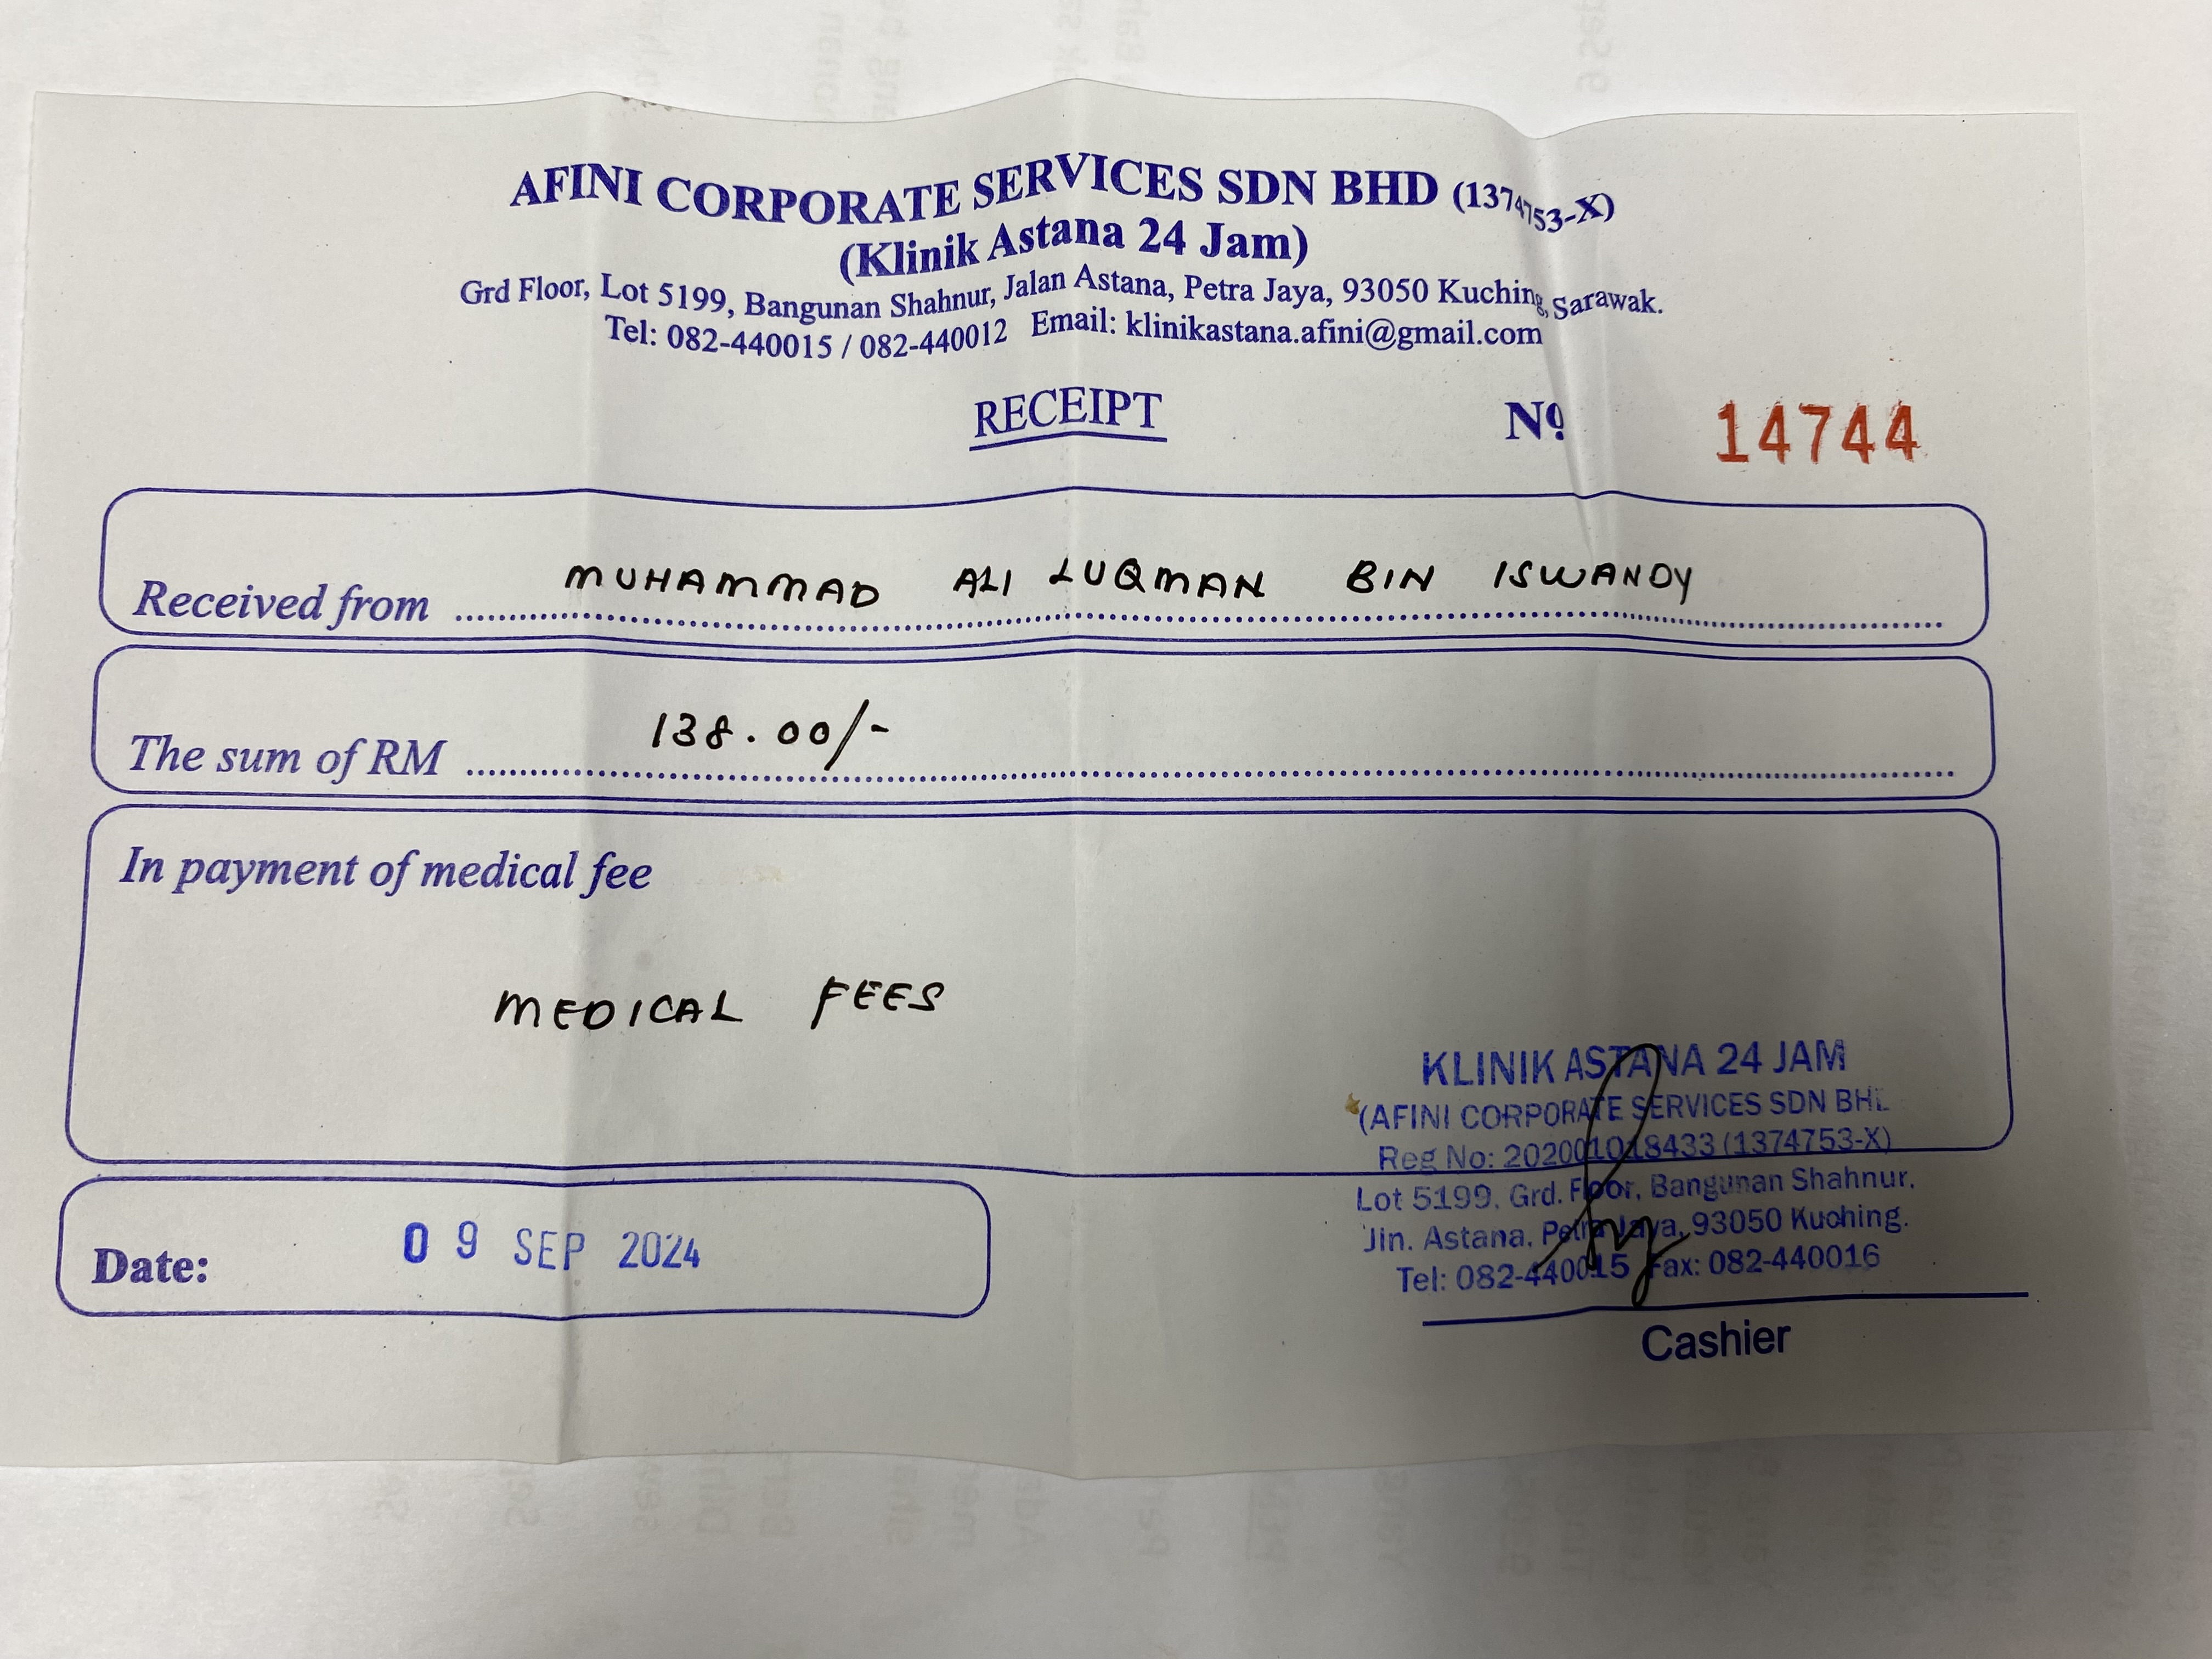 AFINI CORPORATE SERVICES SDN BHD (1374753-X)
(Klinik Astana 24 Jam)
Grd Floor, Lot 5199, Bangunan Shahnur, Jalan Astana, Petra Jaya, 93050 Kuching, Sarawak.
Tel: 082-440015 / 082-440012 Email: klinikastana.afini@gmail.com
RECEIPT
Nº 14744
Received from MUHAMMAD ALI LUQMAN BIN ISWANDY
The sum of RM 138.00/-
In payment of medical fee
MEDICAL FEES
KLINIK ASTANA 24 JAM
(AFINI CORPORATE SERVICES SDN BHD
Reg No: 202001018433 (1374753-X)
Lot 5199, Grd. Floor, Bangunan Shahnur,
Jln. Astana, Petra Jaya, 93050 Kuching.
Tel: 082-440015 Fax: 082-440016
Date: 09 SEP 2024
Cashier